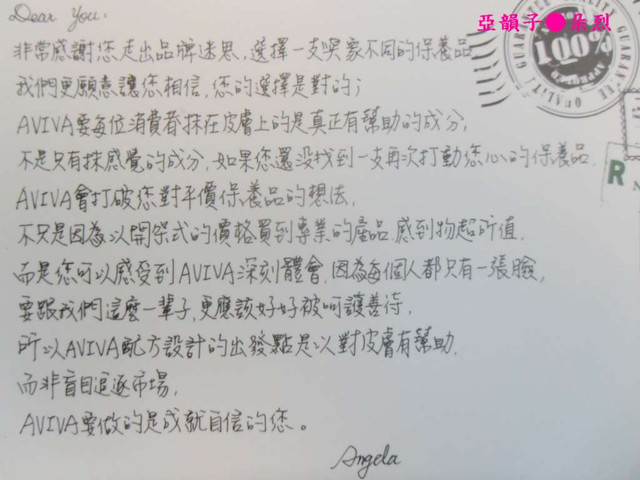 亞韻子●朵烈
Dear You.
非常感謝您走出品牌迷思，選擇一支與眾不同的保養品
我們更願意讓您相信，您的選擇是對的；
AVIVA要每位消費者抹在皮膚上的是真正有幫助的成分，
不是只有抹感覺的成分，如果您還没找到一支再次打動您心的保養品.
AVIVA會打破您對平價保養品的想法，
不只是因為以開架式的價格買到專業的產品，感到物超所值，
而是您可以感受到AVIVA深刻體會，因為每個人都只有一張臉，
要跟我們這麼一輩子，更應該好好被呵護善待，
所以AVIVA配方設計的出發點是以對皮膚有幫助，
而非盲目追逐市場，
AVIVA要做的是成就自信的您。
Angela
100%
R